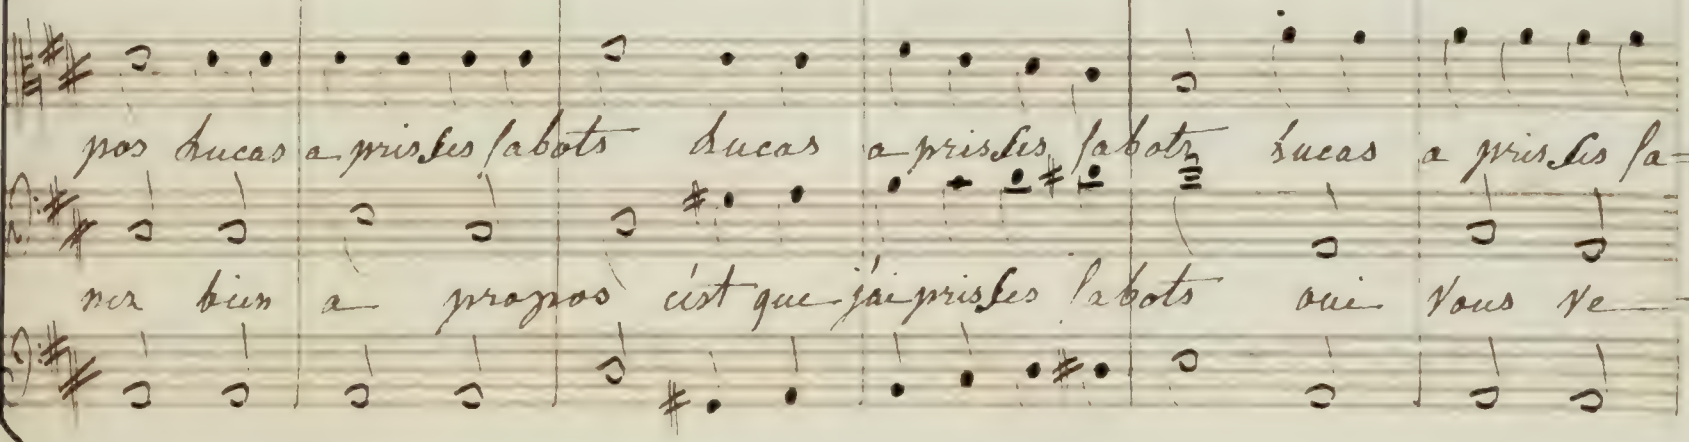 pos Lucas a pris ses sabots Lucas a pris ses sabots Lucas a pris ses sa=
nez bien a propos c'est que j'ai pris ses sabots oui vous ve